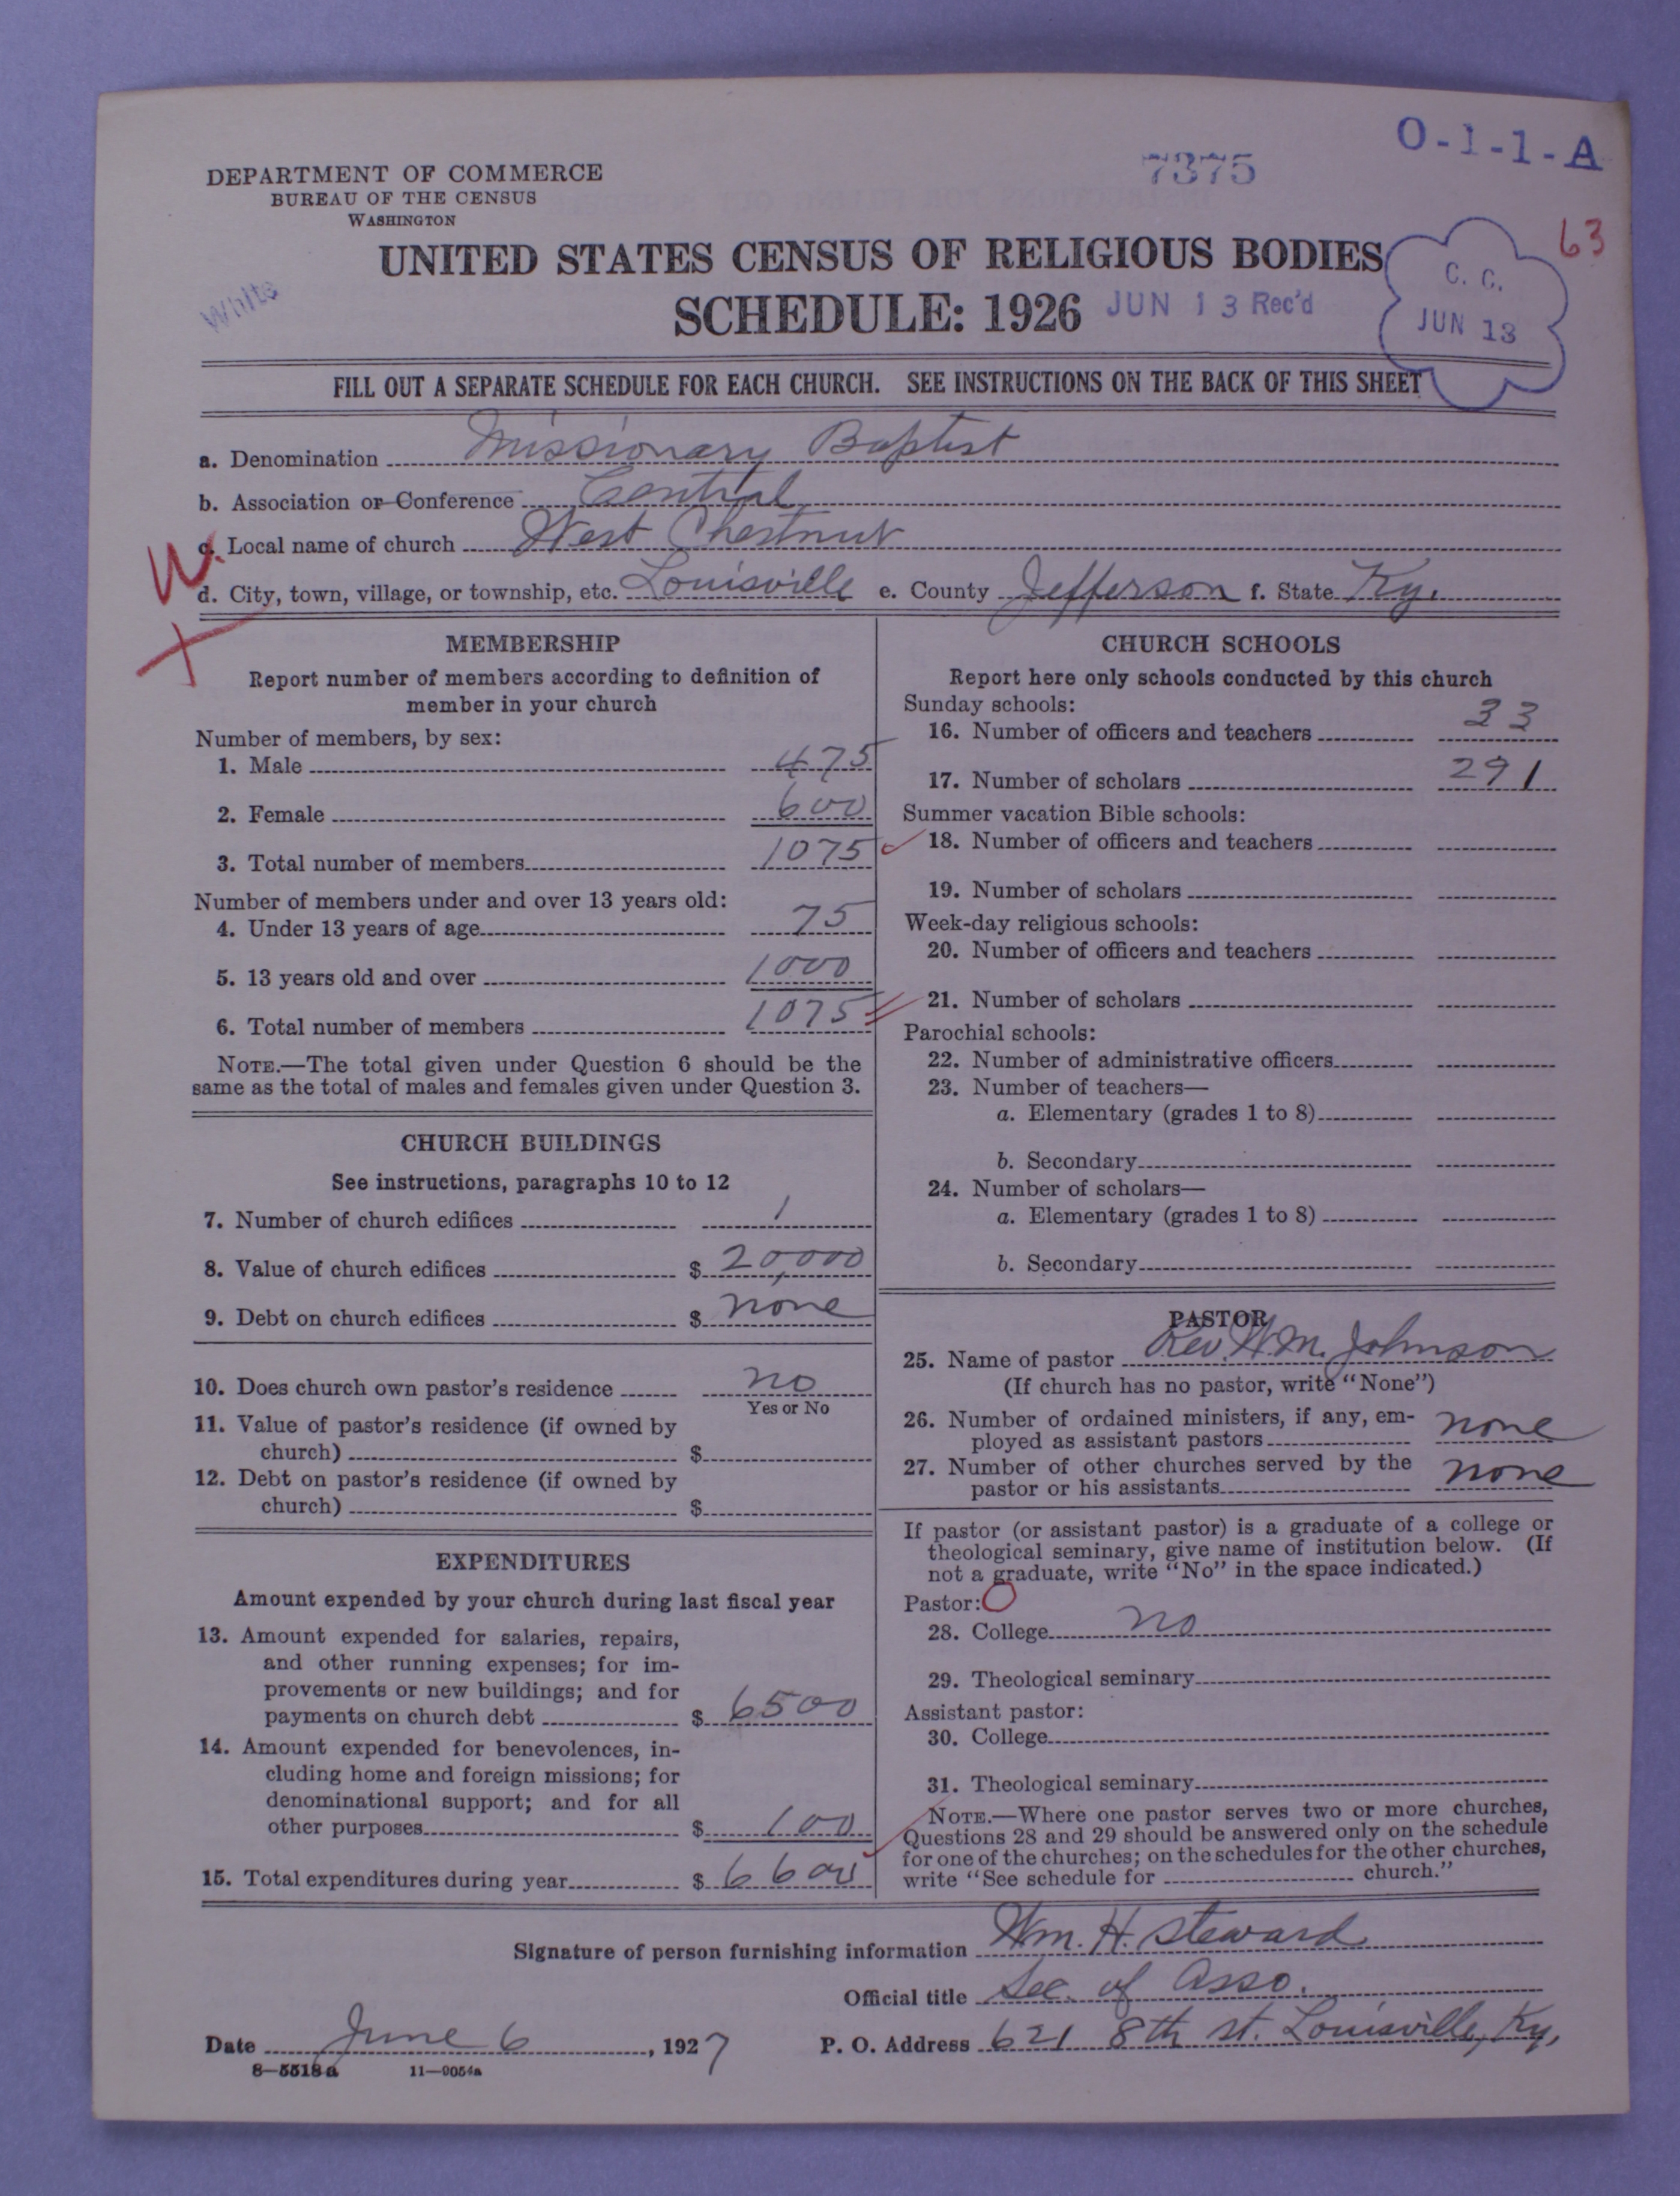 O-1-1-A
7375
DEPARTMENT OF COMMERCE
BUREAU OF THE CENSUS
WASHINGTON
63
UNITED STATES CENSUS OF RELIGIOUS BODIES
White
SCHEDULE: 1926 JUN 13 Rec'd
C. C.
JUN 13
FILL OUT A SEPARATE SCHEDULE FOR EACH CHURCH. SEE INSTRUCTIONS ON THE BACK OF THIS SHEET
a. Denomination Missionary Baptist
b. Association or Conference Central
W.
c. Local name of church West Chestnut
d. City, town, village, or township, etc. Louisville e. County Jefferson f. State Ky.
MEMBERSHIP
Report number of members according to definition of
member in your church
Number of members, by sex:
1. Male 475
2. Female 600
3. Total number of members 1075
Number of members under and over 13 years old:
4. Under 13 years of age 75
5. 13 years old and over 1000
6. Total number of members 1075
NOTE.—The total given under Question 6 should be the
same as the total of males and females given under Question 3.
CHURCH BUILDINGS
See instructions, paragraphs 10 to 12
7. Number of church edifices 1
8. Value of church edifices $ 20,000
9. Debt on church edifices $ none
10. Does church own pastor's residence no
Yes or No
11. Value of pastor's residence (if owned by
church) $
12. Debt on pastor's residence (if owned by
church) $
EXPENDITURES
Amount expended by your church during last fiscal year
13. Amount expended for salaries, repairs,
and other running expenses; for im-
provements or new buildings; and for
payments on church debt $ 6500
14. Amount expended for benevolences, in-
cluding home and foreign missions; for
denominational support; and for all
other purposes $ 100
15. Total expenditures during year $ 6600
CHURCH SCHOOLS
Report here only schools conducted by this church
Sunday schools:
16. Number of officers and teachers 33
17. Number of scholars 291
Summer vacation Bible schools:
18. Number of officers and teachers
19. Number of scholars
Week-day religious schools:
20. Number of officers and teachers
21. Number of scholars
Parochial schools:
22. Number of administrative officers
23. Number of teachers—
a. Elementary (grades 1 to 8)
b. Secondary
24. Number of scholars—
a. Elementary (grades 1 to 8)
b. Secondary
PASTOR
25. Name of pastor Rev. W.M. Johnson
(If church has no pastor, write "None")
26. Number of ordained ministers, if any, em-
ployed as assistant pastors none
27. Number of other churches served by the
pastor or his assistants none
If pastor (or assistant pastor) is a graduate of a college or
theological seminary, give name of institution below. (If
not a graduate, write "No" in the space indicated.)
Pastor:
28. College no
29. Theological seminary
Assistant pastor:
30. College
31. Theological seminary
NOTE.—Where one pastor serves two or more churches,
Questions 28 and 29 should be answered only on the schedule
for one of the churches; on the schedules for the other churches,
write "See schedule for church."
Signature of person furnishing information Wm. H. Steward
Official title Sec. of Asso.
Date June 6, 1927 P. O. Address 621 8th st. Louisville, Ky,
8—5518a 11—9054a